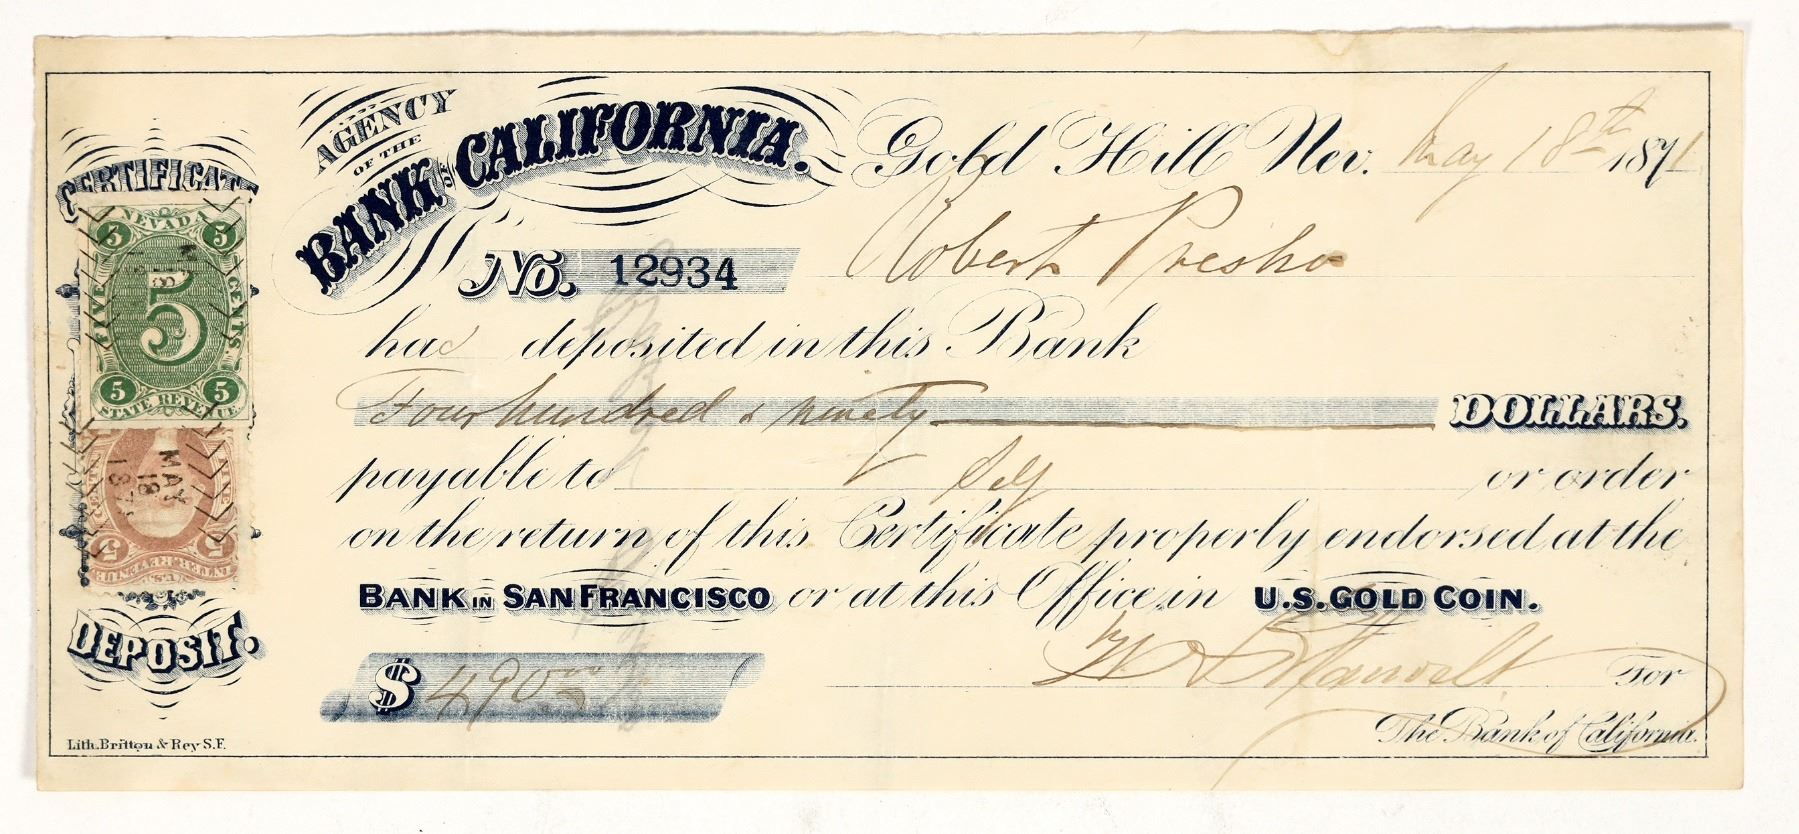 CERTIFICATE
NEVADA
5 5
FIVE 5 CENTS.
5 5
STATE REVENUE
MAY
18
187
5 5
U.S. INTER. REVENUE
DEPOSIT.
Lith. Britton & Rey S.F.
AGENCY
OF THE
BANK OF CALIFORNIA.
Gold Hill Nev. May 18th 1871
No. 12934
Robert Presho
has deposited in this Bank
Four hundred & ninety DOLLARS.
payable to Self or order
on the return of this Certificate properly endorsed at the
BANK IN SAN FRANCISCO or at this Office in U.S. GOLD COIN.
$ 490.00
For
The Bank of California.